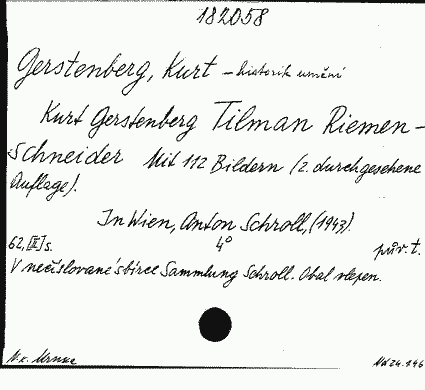 182058
Gerstenberg, Kurt – historik umění
Kurt Gerstenberg Tilman Riemen-
schneider Mit 112 Bildern (2. durchgesehene
Auflage).
In Wien, Anton Schroll, (1943).
62, [II] s. 4° pův. t.
V nečíslované sbírce Sammlung Schroll. Obal vlepen.
N.k.